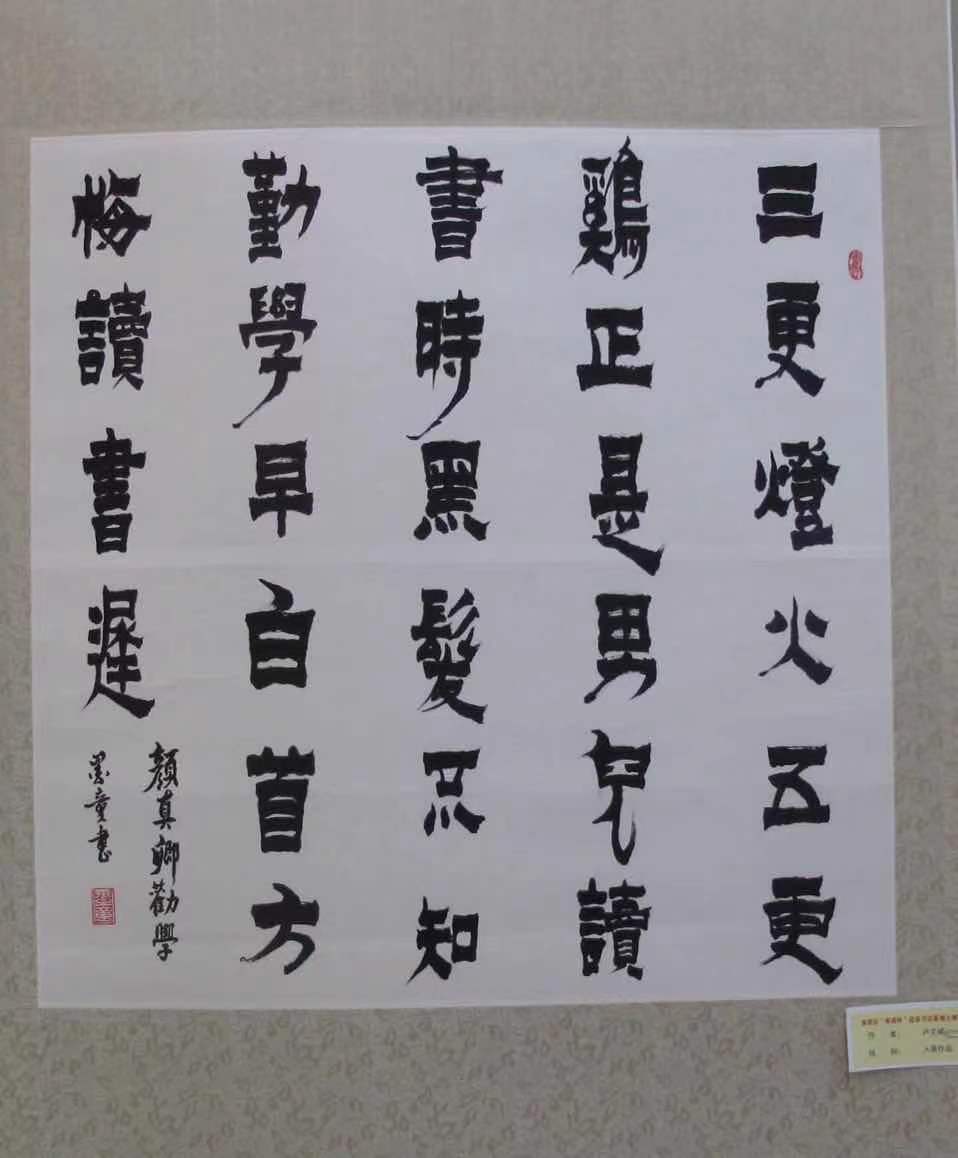 三更燈火五更
鷄正是男兒讀
書時黑髮不知
勤學早白首方
悔讀書遲
顏真卿勸學
墨童書
作 者:
入展作品